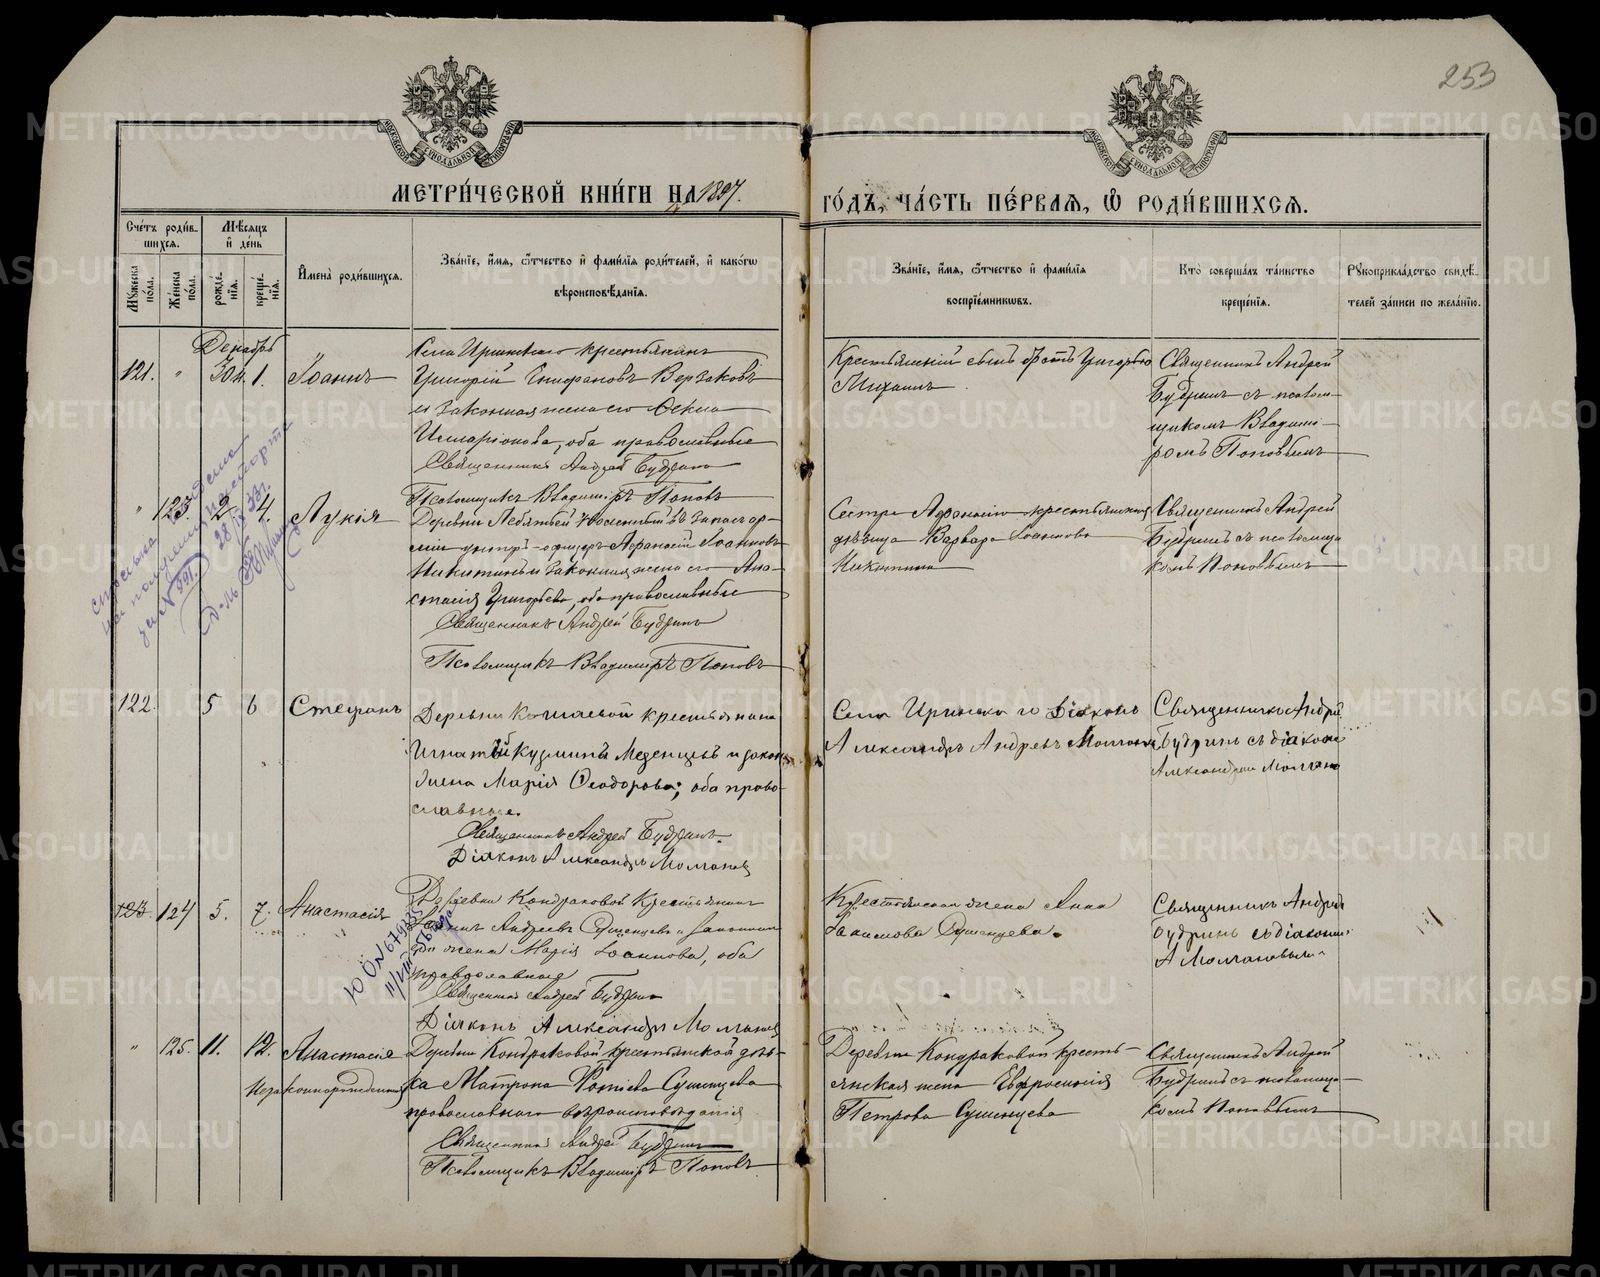 253
МОСКОВСКОЙ СУНОДАЛЬНОЙ ТИПОГРАФІИ
МОСКОВСКОЙ СУНОДАЛЬНОЙ ТИПОГРАФІИ
МЕТРИ́ЧЕСКОЙ КНИ́ГИ НА 1897.
ГО́ДЪ, ЧА́СТЬ ПЕ́РВАЯ, Ѡ РОДИ́ВШИХСЯ.
Сче́тъ роди́в-
шихся.
Мѣ́сяцъ
и́ де́нь
Му́жеска
по́ла.
Же́нска
по́ла.
рожде́-
нїя.
креще́-
нїя.
И҆мена̀ роди́вшихся.
Зва́нїе, и҆́мя, ѻ҆́тчество и҆ фами́лїя роди́телей, и҆ како́гѡ
вѣроисповѣ́данїя.
Зва́нїе, и҆́мя, ѻ҆́тчество и҆ фами́лїя
воспрїе́мникѡвъ.
Кто̀ соверша́лъ та́инство
креще́нїя.
Рукоприкла́дство свидѣ́-
телей за́писи по жела́нїю.
Декабрь
121. " 30 н. 1. Іоаннъ
Села Иринскаго крестьянинъ
Григорій Епифановъ Верзаковъ
и законная жена его Фекла
Илларіонова, оба православные
Священникъ Андрей Будринъ
Псаломщикъ Владиміръ Поповъ
Крестьянскій сынъ
Михаилъ
Священникъ Андрей
Будринъ съ псалом-
щикомъ Владими-
ромъ Поповымъ
" 123. 2 4. Лукія
28/IX 33 г.
Деревни Лебяжьей уволенный въ запасъ ар-
міи унтеръ-офицеръ Афанасій Іоанновъ
Никитинъ и законная жена его Ана-
стасія Григорьева, оба православные
Священникъ Андрей Будринъ
Псаломщикъ Владиміръ Поповъ
Сестра Афанасія крестьянская
дѣвица Варвара Іоаннова
Никитина
Священникъ Андрей
Будринъ съ псаломщи
комъ Поповымъ
122. 5 6 Стефанъ
Деревни крестьянинъ
Игнатій Кузминъ Меденцевъ и закон.
жена Марія Ѳеодорова; оба право-
славные.
Священникъ Андрей Будринъ
Діаконъ Александръ
Села Иринска го Діаконъ
Александръ Андреевъ
Священникъ Андрей
Будринъ съ діакономъ
Александромъ
123. 124 5. 7. Анастасія
Ю О № 679335
11/VIII 56 года
Деревни Кондраковой Крестьянинъ
Андреевъ Сушенцевъ и Законная
его жена Марія Іоаннова, оба
православные
Священникъ Андрей Будринъ
Діаконъ Александръ
Крестьянская жена Анна
Сушенцева.
Священникъ Андрей
Будринъ съ діакономъ
" 125. 11. 12. Анастасія
Незаконнорожденная
Деревни Кондраковой крестьянской дѣв-
ка Матрона Фотіева Сушенцева
православнаго вѣроисповѣданія
Священникъ Андрей Будринъ
Псаломщикъ Владиміръ Поповъ
Деревни Кондраковой кресть-
янская жена Евфросинія
Петрова Сушенцева
Священникъ Андрей
Будринъ съ псаломщи-
комъ Поповымъ
METRIKI.GASO-URAL.RU